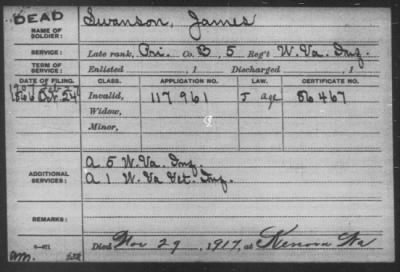 DEAD
NAME OF SOLDIER: Swanson, James
SERVICE: Late rank, Pri. Co. B, 5 Reg't W. Va. Inf.
TERM OF SERVICE: Enlisted , 1 Discharged , 1
DATE OF FILING. CLASS. APPLICATION NO. LAW. CERTIFICATE NO.
Oct. 24 Invalid, 117 961 J age 56 467
Widow,
Minor,
ADDITIONAL SERVICES: A 5 W. Va. Inf.
A 1 W. Va Vet. Inf.
REMARKS:
Died Nov 29, 1917, at Kenova Wa